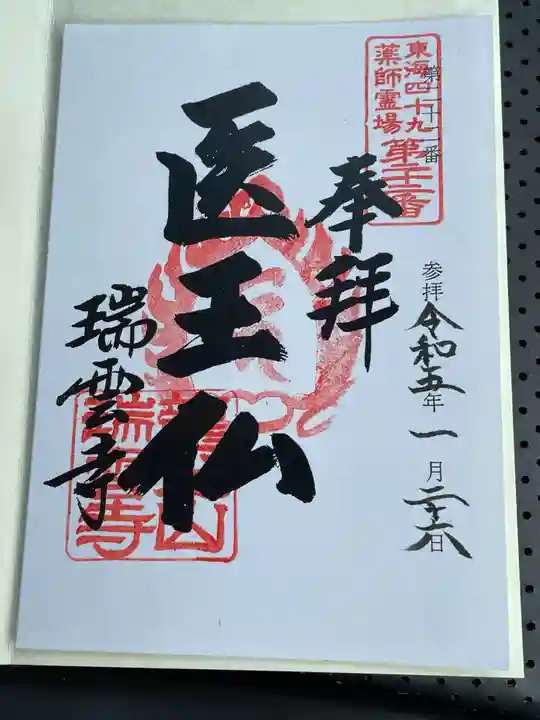 東海四十九
薬師霊場
第二十二番
第二十二番
参拝 令和五年 一月 二十六日
奉拝
医王仏
瑞雲寺
瑞雲寺